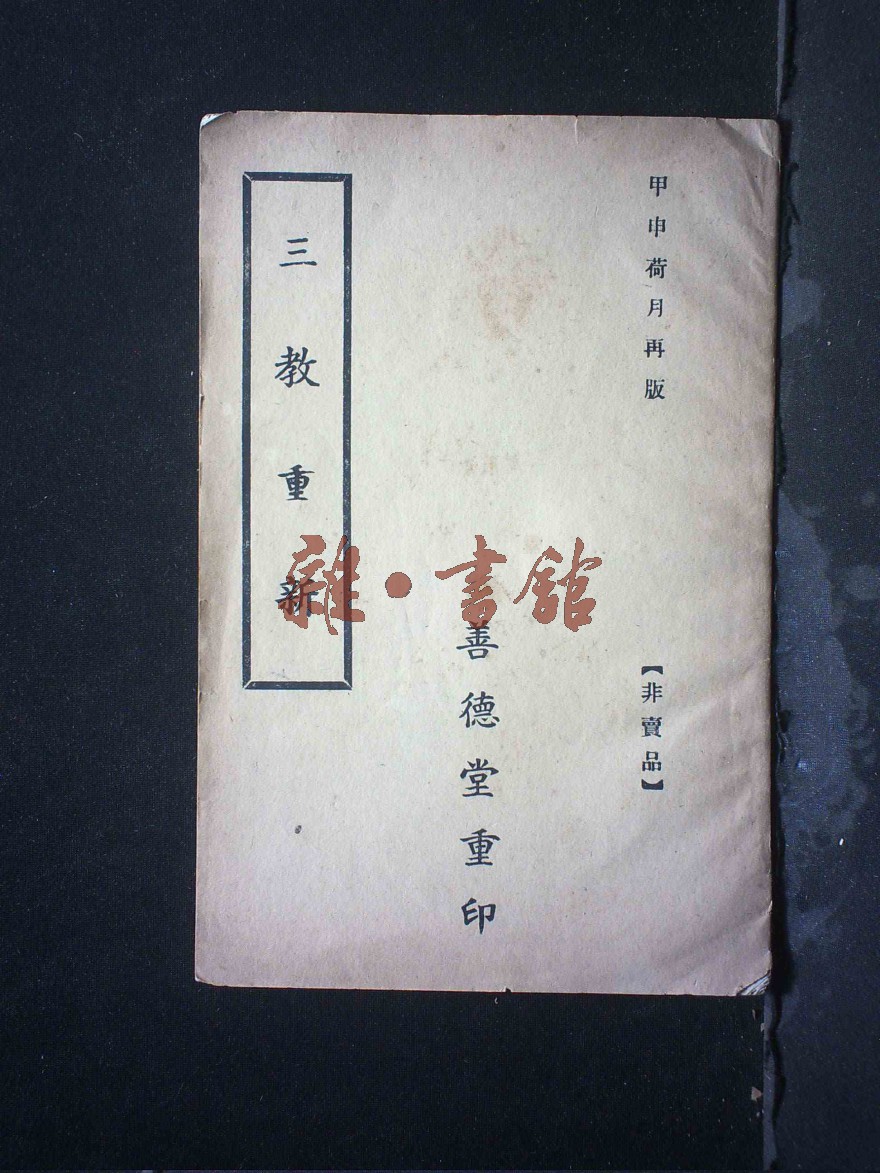 甲申荷月再版
【非賣品】
善德堂重印
三教重新
雜·書館